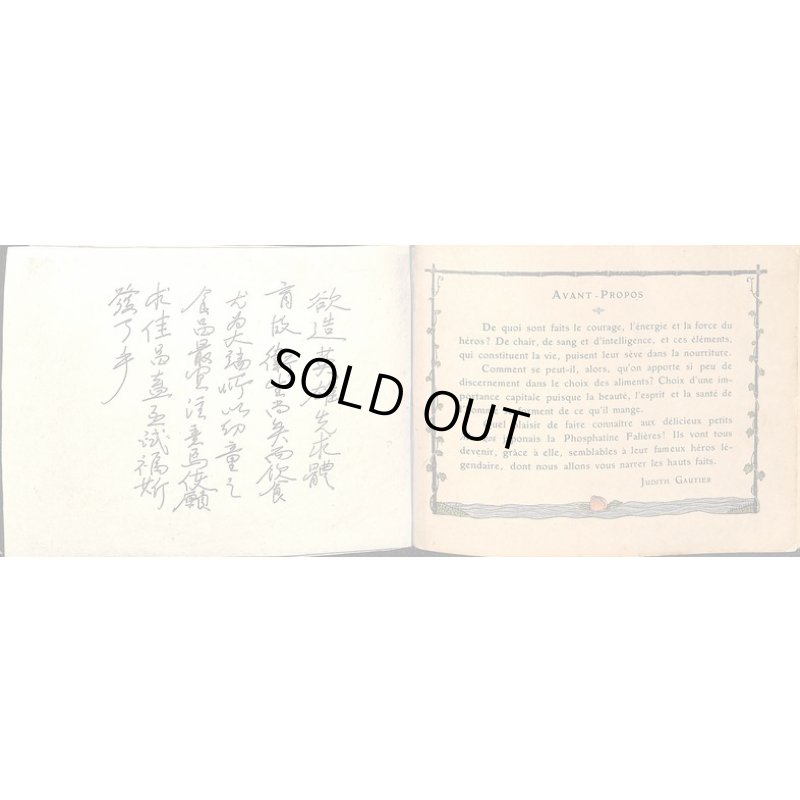 欲造英雄先求體
育故衛生尚矣而飲食
尤为大端所以幼童之
食品最宜注意焉 願
求佳品盍亟試福斯
發丁乎
SOLD OUT
AVANT-PROPOS
De quoi sont faits le courage, l'énergie et la force du
héros? De chair, de sang et d'intelligence, et ces éléments,
qui constituent la vie, puisent leur sève dans la nourriture.
Comment se peut-il, alors, qu'on apporte si peu de
discernement dans le choix des aliments? Choix d'une im-
portance capitale puisque la beauté, l'esprit et la santé de
forment de ce qu'il mange.
Quel plaisir de faire connaître aux délicieux petits
japonais la Phosphatine Falières! Ils vont tous
devenir, grâce à elle, semblables à leur fameux héros lé-
gendaire, dont nous allons vous narrer les hauts faits.
JUDITH GAUTIER